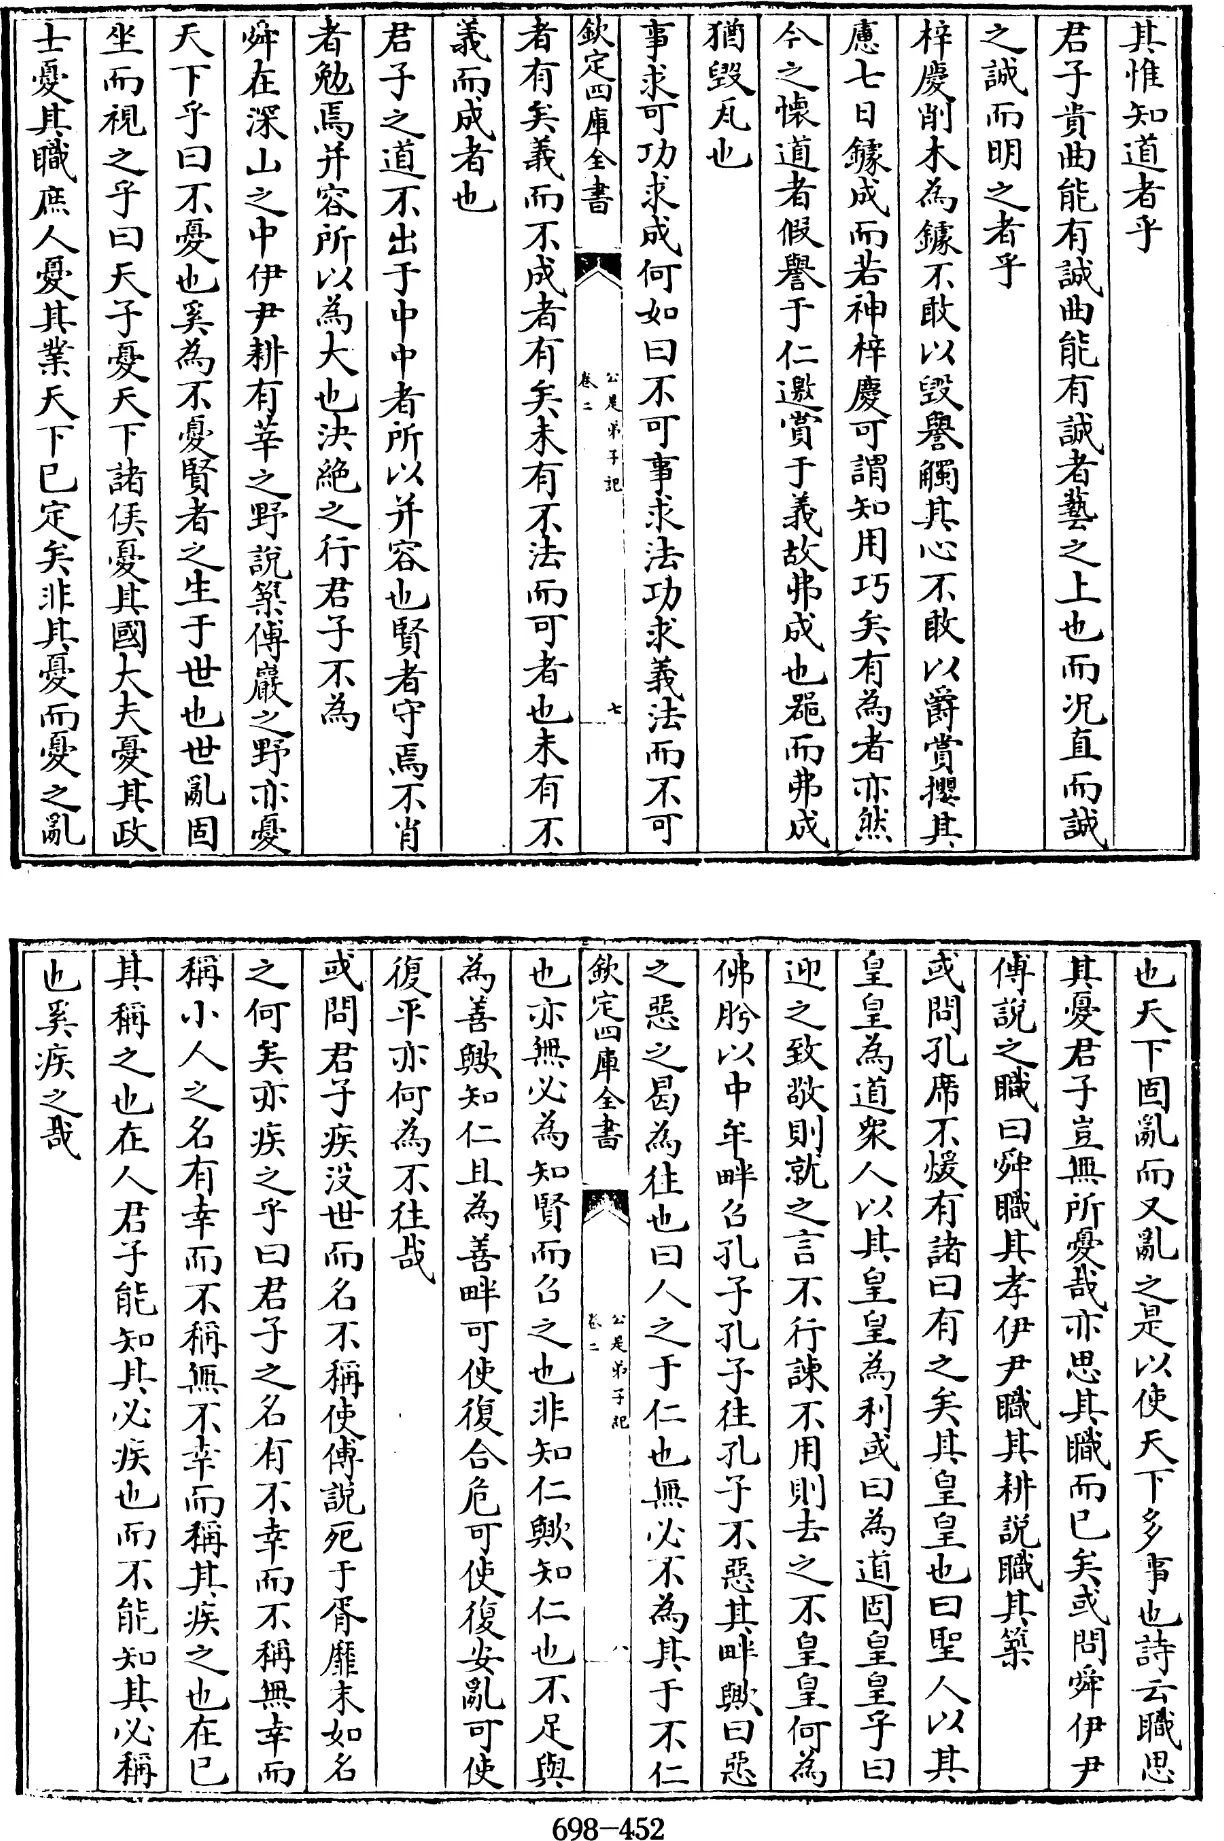 其惟知道者乎
君子貴曲能有誠曲能有誠者藝之上也而况直而誠
之誠而明之者乎
梓慶削木為鐻不敢以毀譽觸其心不敢以爵賞攖其
慮七日鐻成而若神梓慶可謂知用巧矣有為者亦然
今之懐道者假譽于仁邀賞于義故弗成也嚣而弗成
猶毀瓦也
事求可功求成何如曰不可事求法功求義法而不可
欽定四庫全書
公是弟子記
卷二
七
者有矣義而不成者有矣未有不法而可者也未有不
義而成者也
君子之道不出于中中者所以并容也賢者守焉不肖
者勉焉并容所以為大也決絶之行君子不為
舜在深山之中伊尹耕有莘之野說築傅巖之野亦憂
天下乎曰不憂也奚為不憂賢者之生于世也世亂固
坐而視之乎曰天子憂天下諸侯憂其國大夫憂其政
士憂其職庶人憂其業天下已定矣非其憂而憂之亂
也天下固亂而又亂之是以使天下多事也詩云職思
其憂君子豈無所憂哉亦思其職而已矣或問舜伊尹
傅說之職曰舜職其孝伊尹職其耕說職其築
或問孔席不煖有諸曰有之矣其皇皇也曰聖人以其
皇皇為道衆人以其皇皇為利或曰為道固皇皇乎曰
迎之致敬則就之言不行諫不用則去之不皇皇何為
佛肸以中牟畔召孔子孔子往孔子不惡其畔歟曰惡
之惡之曷為往也曰人之于仁也無必不為其于不仁
欽定四庫全書
公是弟子記
卷二
八
也亦無必為知賢而召之也非知仁歟知仁也不足與
為善歟知仁且為善畔可使復合危可使復安亂可使
復平亦何為不往哉
或問君子疾没世而名不稱使傅說死于胥靡末如名
之何矣亦疾之乎曰君子之名有不幸而不稱無幸而
稱小人之名有幸而不稱無不幸而稱其疾之也在已
其稱之也在人君子能知其必疾也而不能知其必稱
也奚疾之哉
698-452